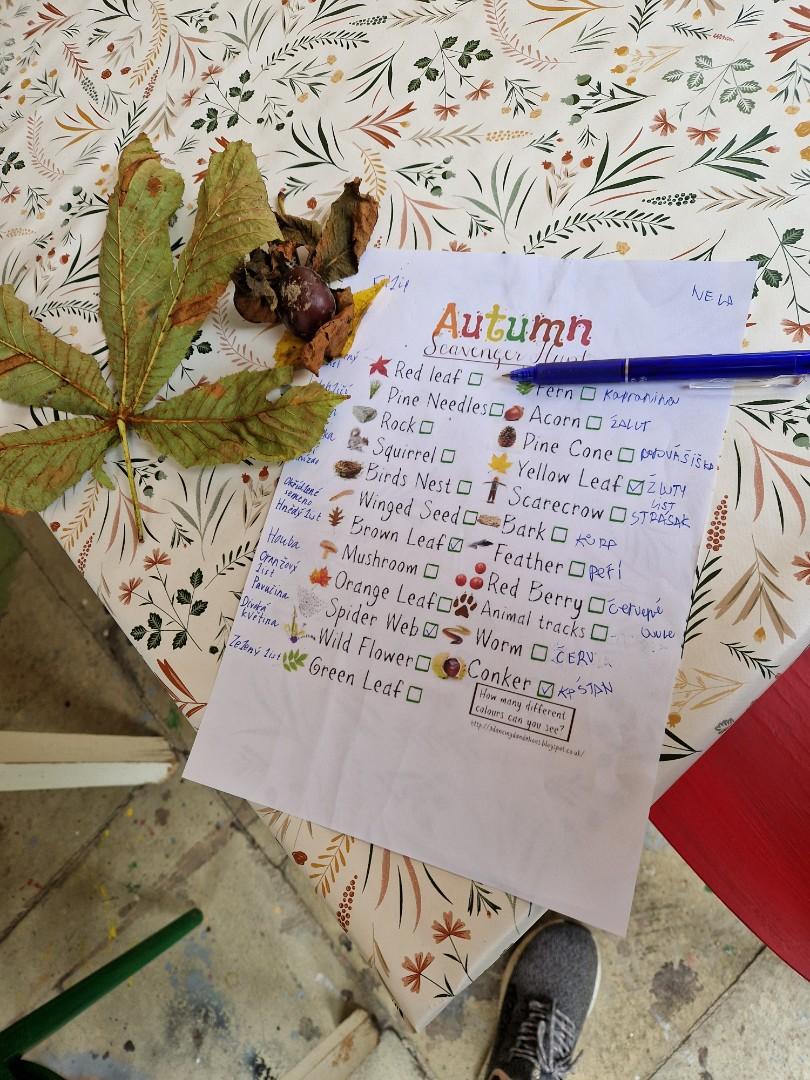 Filip
NELA
Autumn
Scavenger Hunt
Red leaf
Pine Needles
Rock
Squirrel
Birds Nest
Winged Seed
Brown Leaf
Mushroom
Orange Leaf
Spider Web
Wild Flower
Green Leaf
Okřídlené
semeno
Hnědý list
Houba
Oranžový
list
Pavučina
Divoká
květina
Zelený list
Fern
Acorn ŽALUT
Pine Cone
Yellow Leaf ŽLUTÝ
LIST
Scarecrow STRAŠÁK
Bark KŮRA
Feather PEŘÍ
Red Berry
Animal tracks
Worm ČERV
Conker KAŠTAN
How many different
colours can you see?